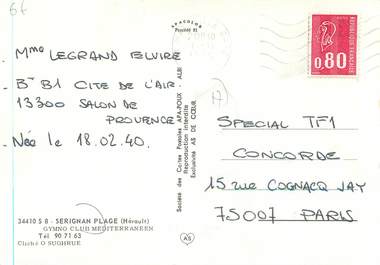 66
Mme LEGRAND ELVIRE
- Bt B1 CITE DE L'AIR
13300 SALON DE
PROVENCE
- Née le 18.02.40.
34410 S 8 - SERIGNAN PLAGE (Hérault)
GYMNO CLUB MÉDITERRANÉEN
Tél 90 71 63
Cliché O SUGHRUE
APACOLOR
Société des Cartes Postales APA-POUX - ALBI
Reproduction interdite
Exclusivité AS DE CŒUR
AS
REPUBLIQUE FRANÇAISE
0,80
SPECIAL TF1
CONCORDE
15 rue COGNACQ JAY
75007 PARIS